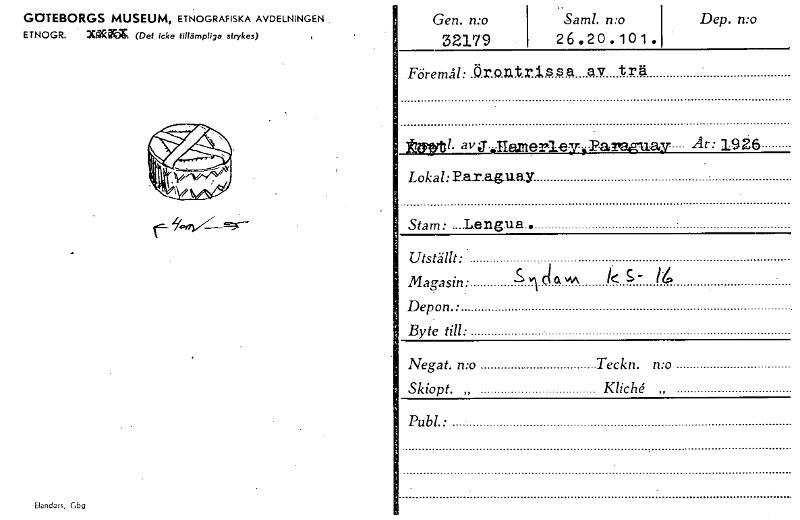 GÖTEBORGS MUSEUM, ETNOGRAFISKA AVDELNINGEN
ETNOGR. (Det icke tillämpliga strykes)
4cm
Elanders, Gbg
Gen. n:o Saml. n:o Dep. n:o
32179 26.20.101.
Föremål: Örontrissa av trä
Köpt av J.Hamerley,Paraguay År: 1926
Lokal: Paraguay
Stam: Lengua.
Utställt:
Magasin: Sydam KS-16
Depon.:
Byte till:
Negat. n:o Teckn. n:o
Skiopt. „ Kliché „
Publ.: